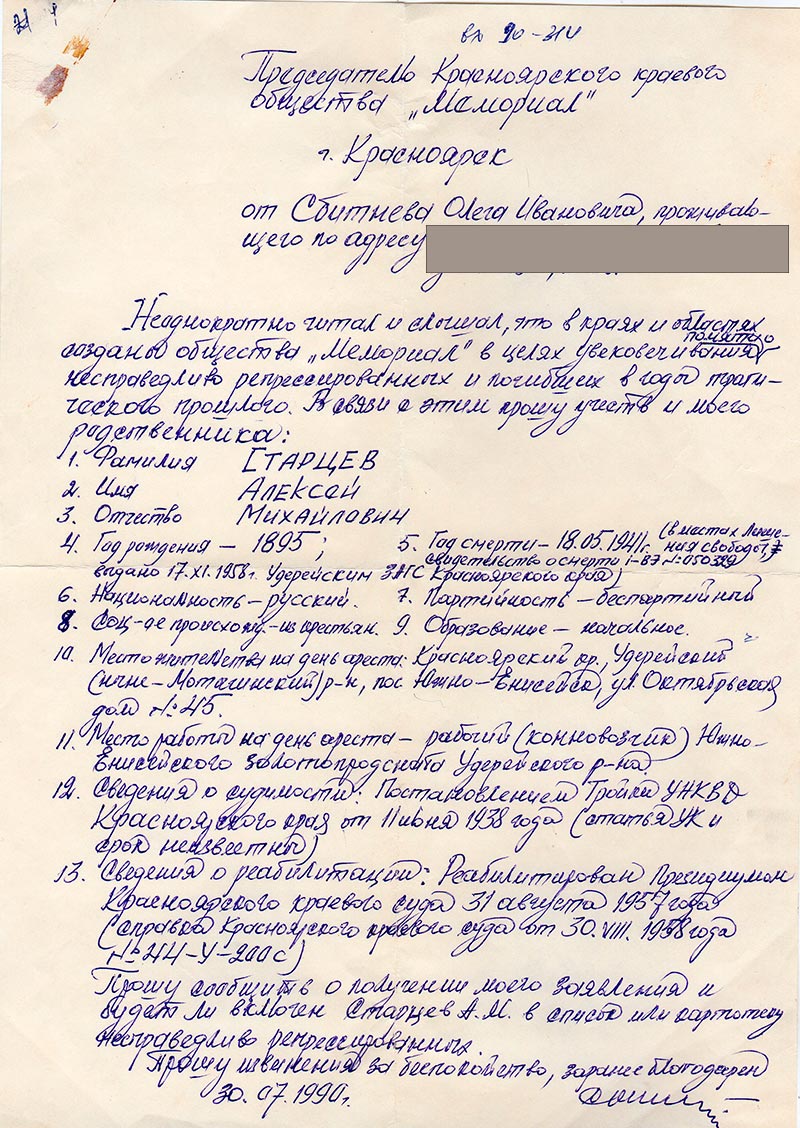 Председателю Красноярского краевого
общества „Мемориал"
г. Красноярск
от Сбитнева Олега Ивановича, проживаю-
щего по адресу
Неоднократно читал и слышал, что в краях и областях
созданы общества „Мемориал" в целях увековечивания памяти
несправедливо репрессированных и погибших в годы траги-
ческого прошлого. В связи с этим прошу учесть и моего
родственника:
1. Фамилия СТАРЦЕВ
2. Имя АЛЕКСЕЙ
3. Отчество МИХАЙЛОВИЧ
4. Год рождения – 1895; 5. Год смерти – 18.05.1941г. (в местах Лише-
ния свободы,
свидетельство о смерти I-БЭ № 050329
выдано 17.XI.1958г. Удерейским ЗАГС Красноярского края)
6. Национальность – русский. 7. Партийность – беспартийный
8. Соц-ое происхожд.-из крестьян. 9. Образование – начальное.
10. Место жительства на день ареста: Красноярский кр., Удерейский
(ныне – Мотыгинский) р-н, пос. Южно-Енисейск, ул. Октябрьская
дом № 45.
11. Место работы на день ареста – рабочий (конновозчик) Южно-
Енисейского золотопродснаба Удерейского р-на
12. Сведения о судимости: Постановлением Тройки УНКВД
Красноярского края от 11 июня 1938 года (статья УК и
срок неизвестны)
13. Сведения о реабилитации: Реабилитирован Президиумом
Красноярского краевого суда 31 августа 1957 года
(справка Красноярского краевого суда от 30.VIII.1958 года
№ 44-У-200с)
Прошу сообщить о получении моего заявления и
будет ли включен Старцев А.М. в список или картотеку
несправедливо репрессированных.
Прошу извинения за беспокойство, заранее благодарен
30.07.1990г.